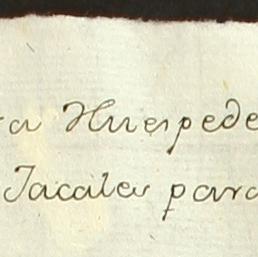 ra Huespede
Jacales para